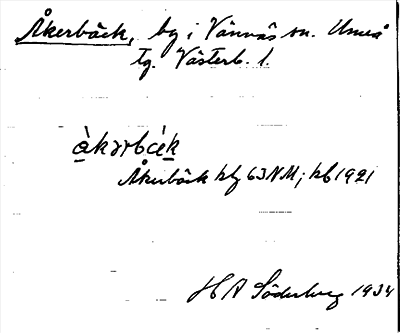 Åkerbäck, by i Vännäs sn. Umeå
tg. Västerb. l.
àkərbàk
Åkerbäck hfl 63 NM; kb 1921
H A Söderberg 1934